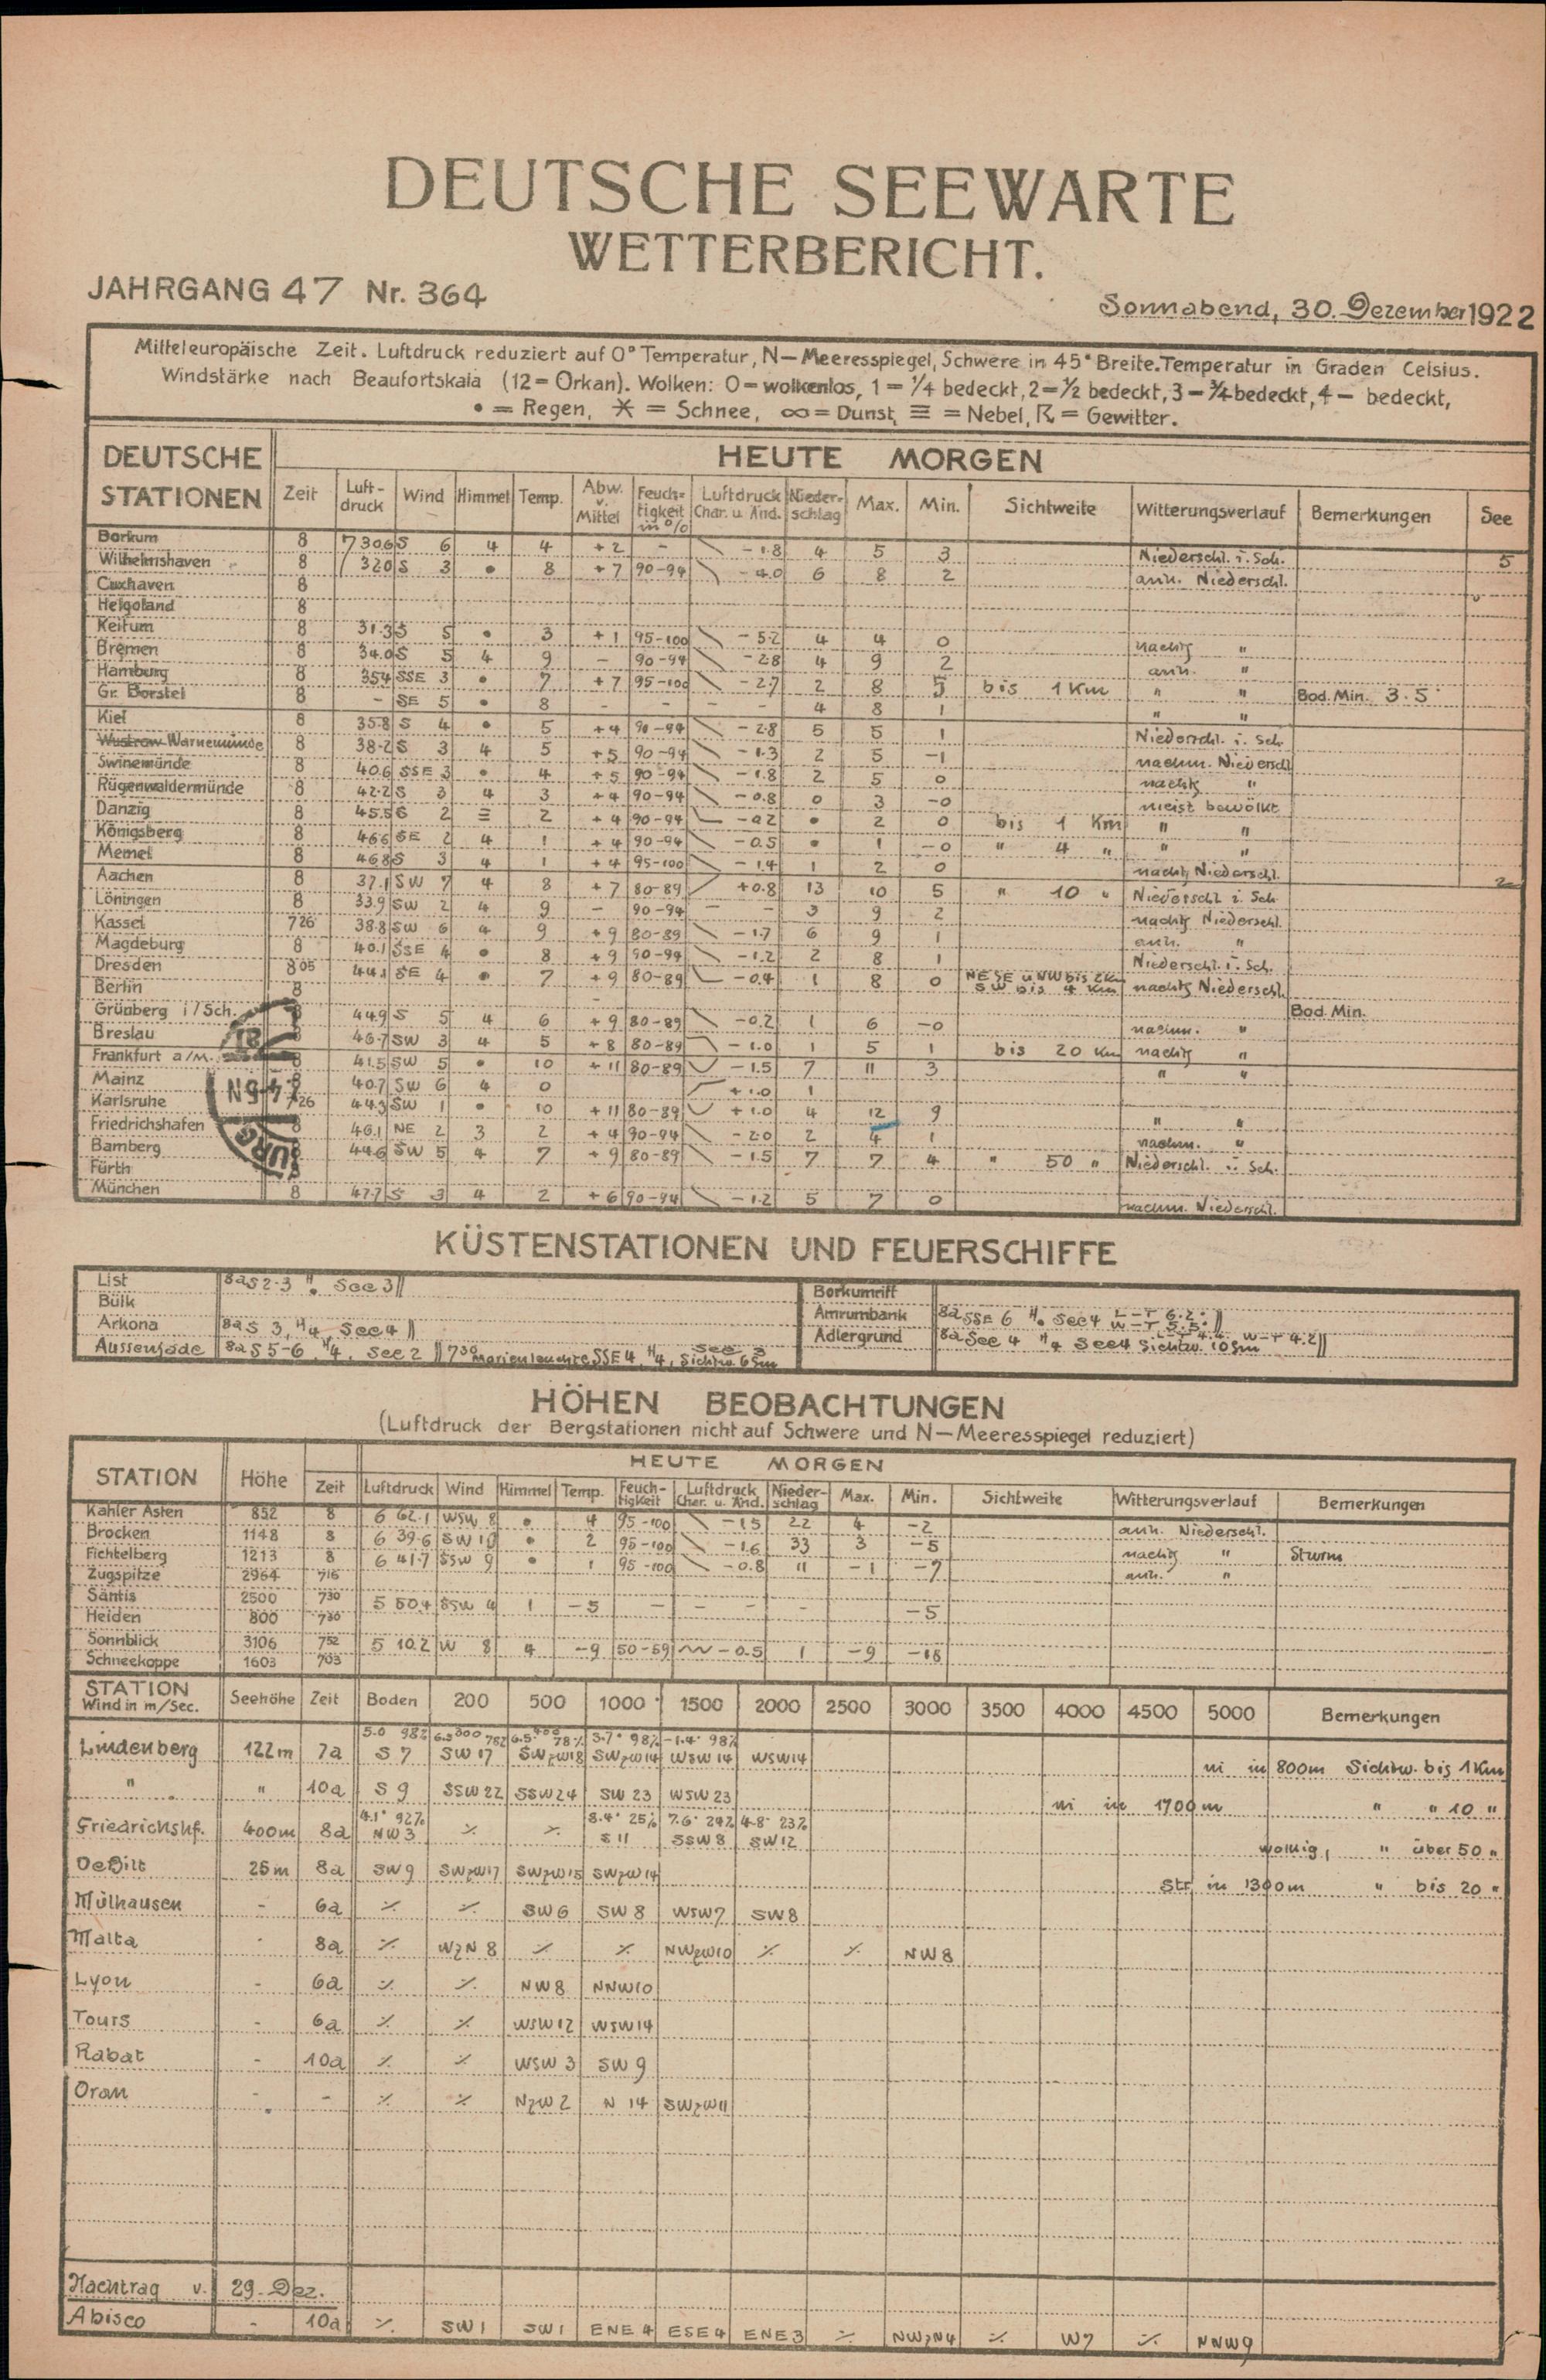 DEUTSCHE SEEWARTE
WETTERBERICHT.
JAHRGANG 47 Nr. 364
Sonnabend, 30. Dezember 1922
Mitteleuropäische Zeit. Luftdruck reduziert auf 0° Temperatur, N—Meeresspiegel, Schwere in 45° Breite. Temperatur in Graden Celsius.
Windstärke nach Beaufortskala (12 = Orkan). Wolken: 0 = wolkenlos, 1 = 1/4 bedeckt, 2 = 1/2 bedeckt, 3 = 3/4 bedeckt, 4 — bedeckt,
• = Regen, ✶ = Schnee, ∞ = Dunst, ≡ = Nebel, ☈ = Gewitter.
DEUTSCHE STATIONEN HEUTE MORGEN
Zeit Luft-druck Wind Himmel Temp. Abw. v. Mittel Feuch-tigkeit in % Luftdruck Char. u. Änd. Nieder-schlag Max. Min. Sichtweite Witterungsverlauf Bemerkungen See
Borkum 8 730.6 S 6 4 4 +2 - \ -1.8 4 5 3 Niederschl. i. Sch. 5
Wilhelmshaven 8 32.0 S 3 • 8 +7 90-94 \ -4.0 6 8 2 anh. Niederschl.
Cuxhaven 8
Helgoland 8
Keitum 8 31.3 S 5 • 3 +1 95-100 \ -5.2 4 4 0 nachts "
Bremen 8 34.0 S 5 4 9 - 90-94 \ -2.8 4 9 2 anh. "
Hamburg 8 35.4 SSE 3 • 7 +7 95-100 \ -2.7 2 8 5 bis 1 Km " " Bod. Min. 3.5
Gr. Borstel 8 - SE 5 • 8 - - - - 4 8 1 " "
Kiel 8 35.8 S 4 • 5 +4 90-94 \ -2.8 5 5 1 Niederschl. i. Sch.
Wustrow Warnemünde 8 38.2 S 3 4 5 +5 90-94 \ -1.3 2 5 -1 nachm. Niederschl
Swinemünde 8 40.6 SSE 3 • 4 +5 90-94 \ -1.8 2 5 0 nachts "
Rügenwaldermünde 8 42.2 S 3 4 3 +4 90-94 \ -0.8 0 3 -0 meist bewölkt
Danzig 8 45.5 S 2 ≡ 2 +4 90-94 -0.2 • 2 0 bis 1 Km " "
Königsberg 8 46.6 SE 2 4 1 +4 90-94 \ -0.5 • 1 -0 " 4 " " "
Memel 8 46.8 S 3 4 1 +4 95-100 \ -1.4 1 2 0 nachts Niederschl. 2
Aachen 8 37.1 SW 7 4 8 +7 80-89 / +0.8 13 10 5 " 10 " Niederschl i. Sch
Löningen 8 33.9 SW 2 4 9 - 90-94 - - 3 9 2 nachts Niederschl.
Kassel 7 26 38.8 SW 6 4 9 +9 80-89 \ -1.7 6 9 1 anh. "
Magdeburg 8 40.1 SSE 4 • 8 +9 90-94 \ -1.2 2 8 1 Niederschl. i. Sch.
Dresden 8 05 44.1 SE 4 • 7 +9 80-89 -0.4 1 8 0 NE SE u NW bis 2 Km SW bis 4 Km nachts Niederschl.
Berlin 8
Grünberg i/Sch. 8 44.9 S 5 4 6 +9 80-89 \ -0.2 1 6 -0 nachm. " Bod. Min.
Breslau 8 46.7 SW 3 4 5 +8 80-89 -1.0 1 5 1 bis 20 Km nachts "
Frankfurt a/M. 8 41.5 SW 5 • 10 +11 80-89 -1.5 7 11 3 " "
Mainz 8 40.7 SW 6 4 0 +1.0 1
Karlsruhe 7 26 44.3 SW 1 • 10 +11 80-89 +1.0 4 12 9 " "
Friedrichshafen 8 46.1 NE 2 3 2 +4 90-94 \ -2.0 2 4 1 nachm. "
Bamberg 8 44.6 SW 5 4 7 +9 80-89 \ -1.5 7 7 4 " 50 " Niederschl. i. Sch.
Fürth 8
München 8 47.7 S 3 4 2 +6 90-94 \ -1.2 5 7 0 nachm. Niederschl.
KÜSTENSTATIONEN UND FEUERSCHIFFE
List 8a S 2-3 H• See 3 ||
Bülk
Arkona 8a S 3, H4, See 4 ||
Aussenjade 8a S 5-6, H4, See 2 || 7 30 Marienleuchte SSE 4, H4, See 3 Sichtw. 6 Sm
Borkumriff
Amrumbank 8a SSE 6 H• See 4 L-T 6.2° W-T 5.5° ||
Adlergrund 8a See 4 H4 See 4 Sichtw. 10 Sm L-T 4.4 W-T 4.2 ||
HÖHEN BEOBACHTUNGEN
(Luftdruck der Bergstationen nicht auf Schwere und N—Meeresspiegel reduziert)
STATION Höhe HEUTE MORGEN
Zeit Luftdruck Wind Himmel Temp. Feuch-tigkeit Luftdruck Char. u. Änd. Nieder-schlag Max. Min. Sichtweite Witterungsverlauf Bemerkungen
Kahler Asten 852 8 6 62.1 WSW 8 • 4 95-100 \ -1.5 22 4 -2 anh. Niederschl.
Brocken 1148 8 6 39.6 SW 10 • 2 95-100 \ -1.6 33 3 -5 nachts " Sturm
Fichtelberg 1213 8 6 41.7 SSW 9 • 1 95-100 \ -0.8 11 -1 -7 anh. "
Zugspitze 2964 7 16
Säntis 2500 7 30 5 50.4 SSW 4 1 -5 - - - - -5
Heiden 800 7 30
Sonnblick 3106 7 52 5 10.2 W 8 4 -9 50-59 -0.5 1 -9 -18
Schneekoppe 1603 7 03
STATION Wind in m/Sec. Seehöhe Zeit Boden 200 500 1000 1500 2000 2500 3000 3500 4000 4500 5000 Bemerkungen
5.0 98% 6.3 300 78% 6.5° 400 78% 3.7° 98% -1.4° 98%
Lindenberg 122m 7a S 7 SW 17 SWzW 18 SWzW 14 WSW 14 WSW 14 ni in 800m Sichtw. bis 1 Km
" " 10a S 9 SSW 22 SSW 24 SW 23 WSW 23 ni in 1700 m " " 10 "
4.1° 92% 8.4° 25% 7.6° 24% 4.8° 23%
Friedrichshf. 400m 8a NW 3 ⁒ ⁒ S 11 SSW 8 SW 12 wolkig, " über 50 "
DeBilt 25m 8a SW 9 SWzW 17 SWzW 15 SWzW 14 Str in 1300m " bis 20 "
Mülhausen - 6a ⁒ ⁒ SW 6 SW 8 WSW 7 SW 8
Malta - 8a ⁒ WzN 8 ⁒ ⁒ NWzW 10 ⁒ ⁒ NW 8
Lyon - 6a ⁒ ⁒ NW 8 NNW 10
Tours - 6a ⁒ ⁒ WSW 12 WSW 14
Rabat - 10a ⁒ ⁒ WSW 3 SW 9
Oran - - ⁒ ⁒ NzW 2 N 14 SWzW 11
Nachtrag v. 29. Dez.
Abisco - 10a ⁒ SW 1 SW 1 ENE 4 ESE 4 ENE 3 ⁒ NWzN 4 ⁒ W 7 ⁒ NNW 9